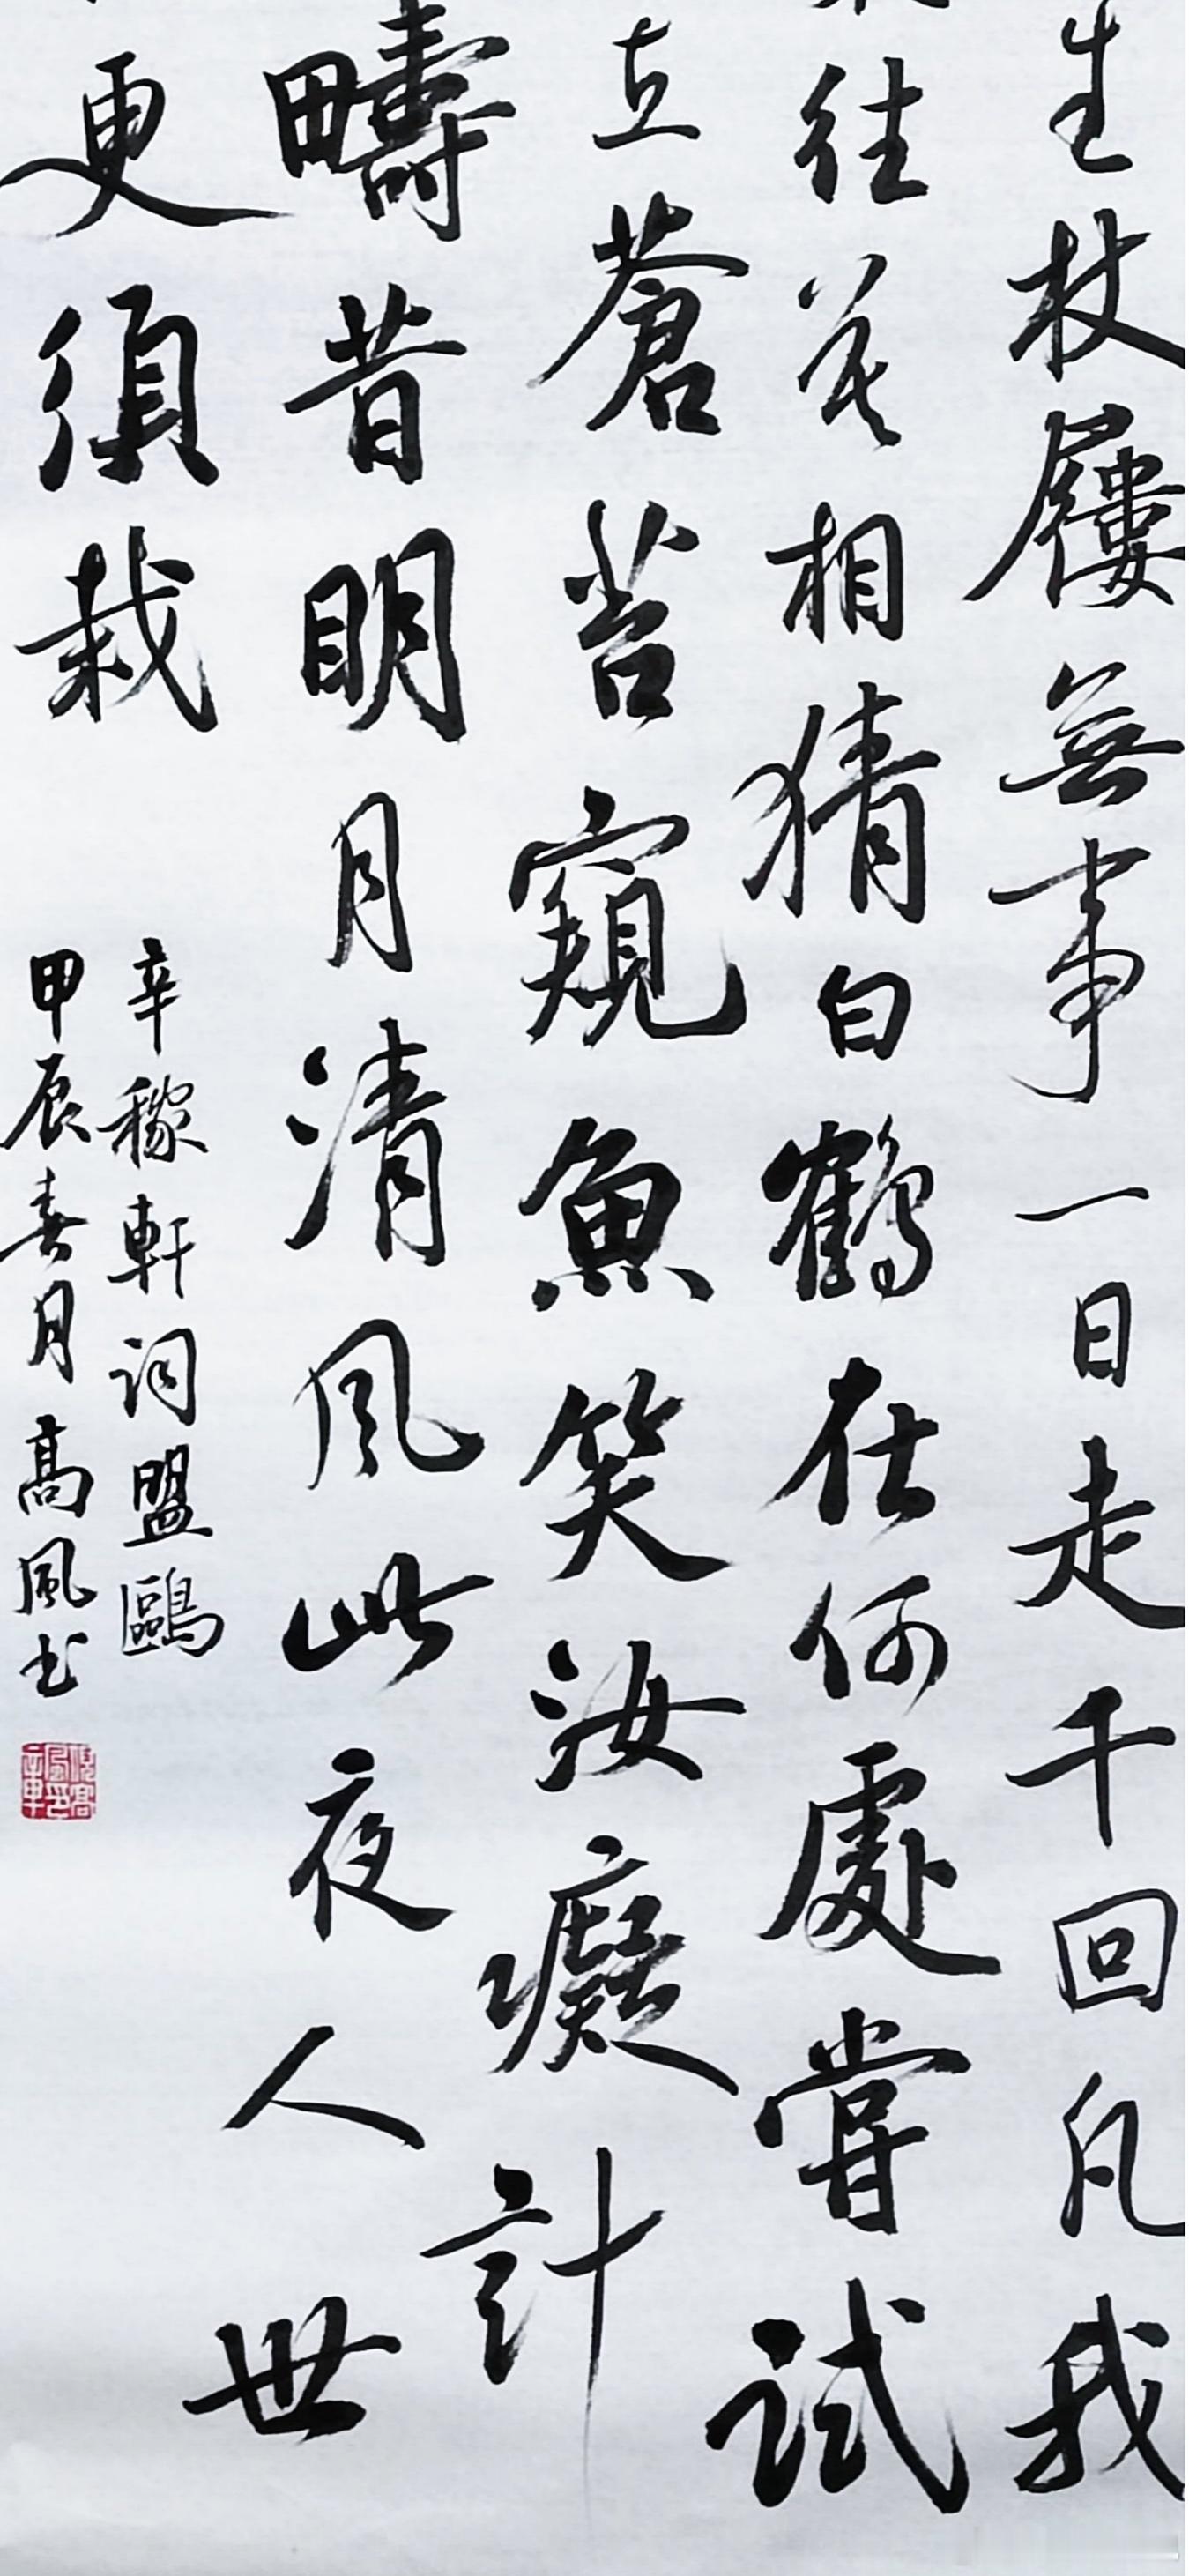 生杖屨無事一日走千回凡我
往莫相猜白鶴在何處嘗試
立蒼苔窺魚笑汝癡計
疇昔明月清風此夜人世
更須栽
辛稼軒詞盟鷗
甲辰春月高風书